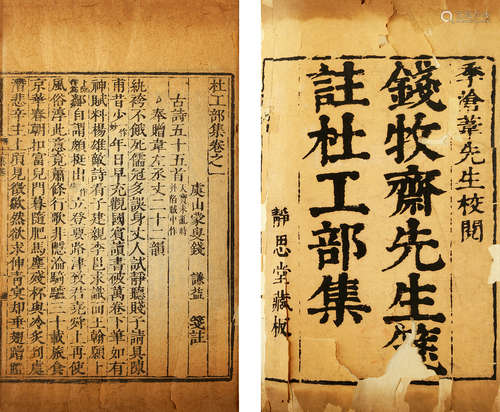 季滄葦先生校閱
錢牧齋先生箋
註杜工部集
靜思堂藏板
杜工部集卷之一
虞山蒙叟錢 謙益 箋註
古詩五十五首 天寶未亂時并陷賊中作
奉贈韋左丞丈二十二韻
紈袴不餓死儒冠多誤身丈人試靜聽賤子請具陳
甫昔少年日早充觀國賓讀書破萬卷下筆如有
神賦料楊雄敵詩看子建親李邕求識面王翰願
鄰自謂頗挺出立登要路津致君堯舜上再使
風俗淳此意竟蕭條行歌非隱淪騎驢三十載旅食
京華春朝扣富兒門暮隨肥馬塵殘杯與冷炙到處
潛悲辛主上頃見徵欻然欲求伸青冥却垂翅蹭蹬